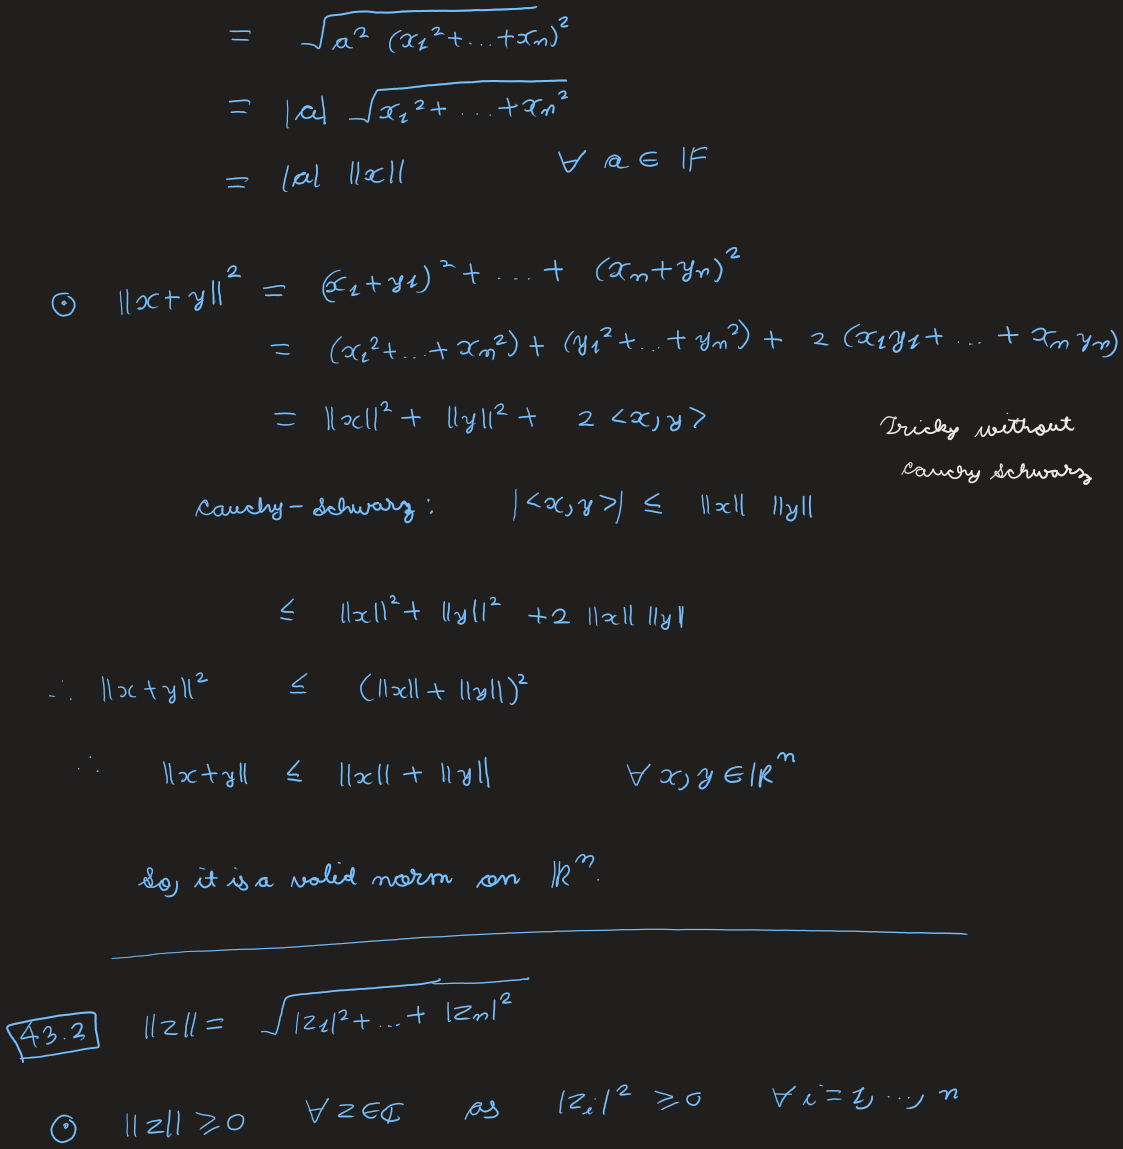 = √(a² (x₁²+...+xₙ)²
= |a| √(x₁²+ ...+xₙ²
= |a| ||x|| ∀ a ∈ F
⊙ ||x+y||² = (x₁+y₁)²+ ...+ (xₙ+yₙ)²
= (x₁²+...+xₙ²)+ (y₁²+...+yₙ²)+ 2 (x₁y₁+ ... + xₙyₙ)
= ||x||²+ ||y||²+ 2 <x,y>
Tricky without
Cauchy Schwarz
Cauchy-Schwarz: |<x,y>| ≤ ||x|| ||y||
≤ ||x||²+ ||y||² +2 ||x|| ||y|
∴ ||x+y||² ≤ (||x||+ ||y||)²
∴ ||x+y|| ≤ ||x|| + ||y|| ∀ x,y ∈ ℝⁿ
So, it is a valid norm on ℝⁿ.
43.2 ||z|| = √(|z₁|²+...+ |zₙ|²
⊙ ||z|| ≥ 0 ∀ z∈ℂ as |zᵢ|² ≥ 0 ∀ i=1, ..., n